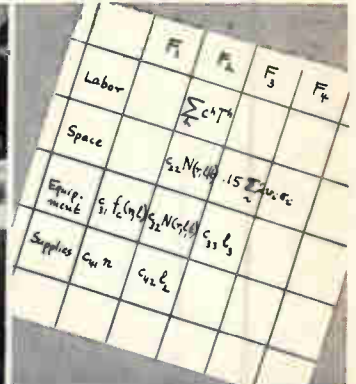 F₁ F₂ F₃ F₄
Labor ∑ cʰTʰ
Space N(r, .15 ∑
Equip-
ment c₃₁ c₃₂ N(r, c₃₃ l₃
Supplies c₄₁ n c₄₂ l₂